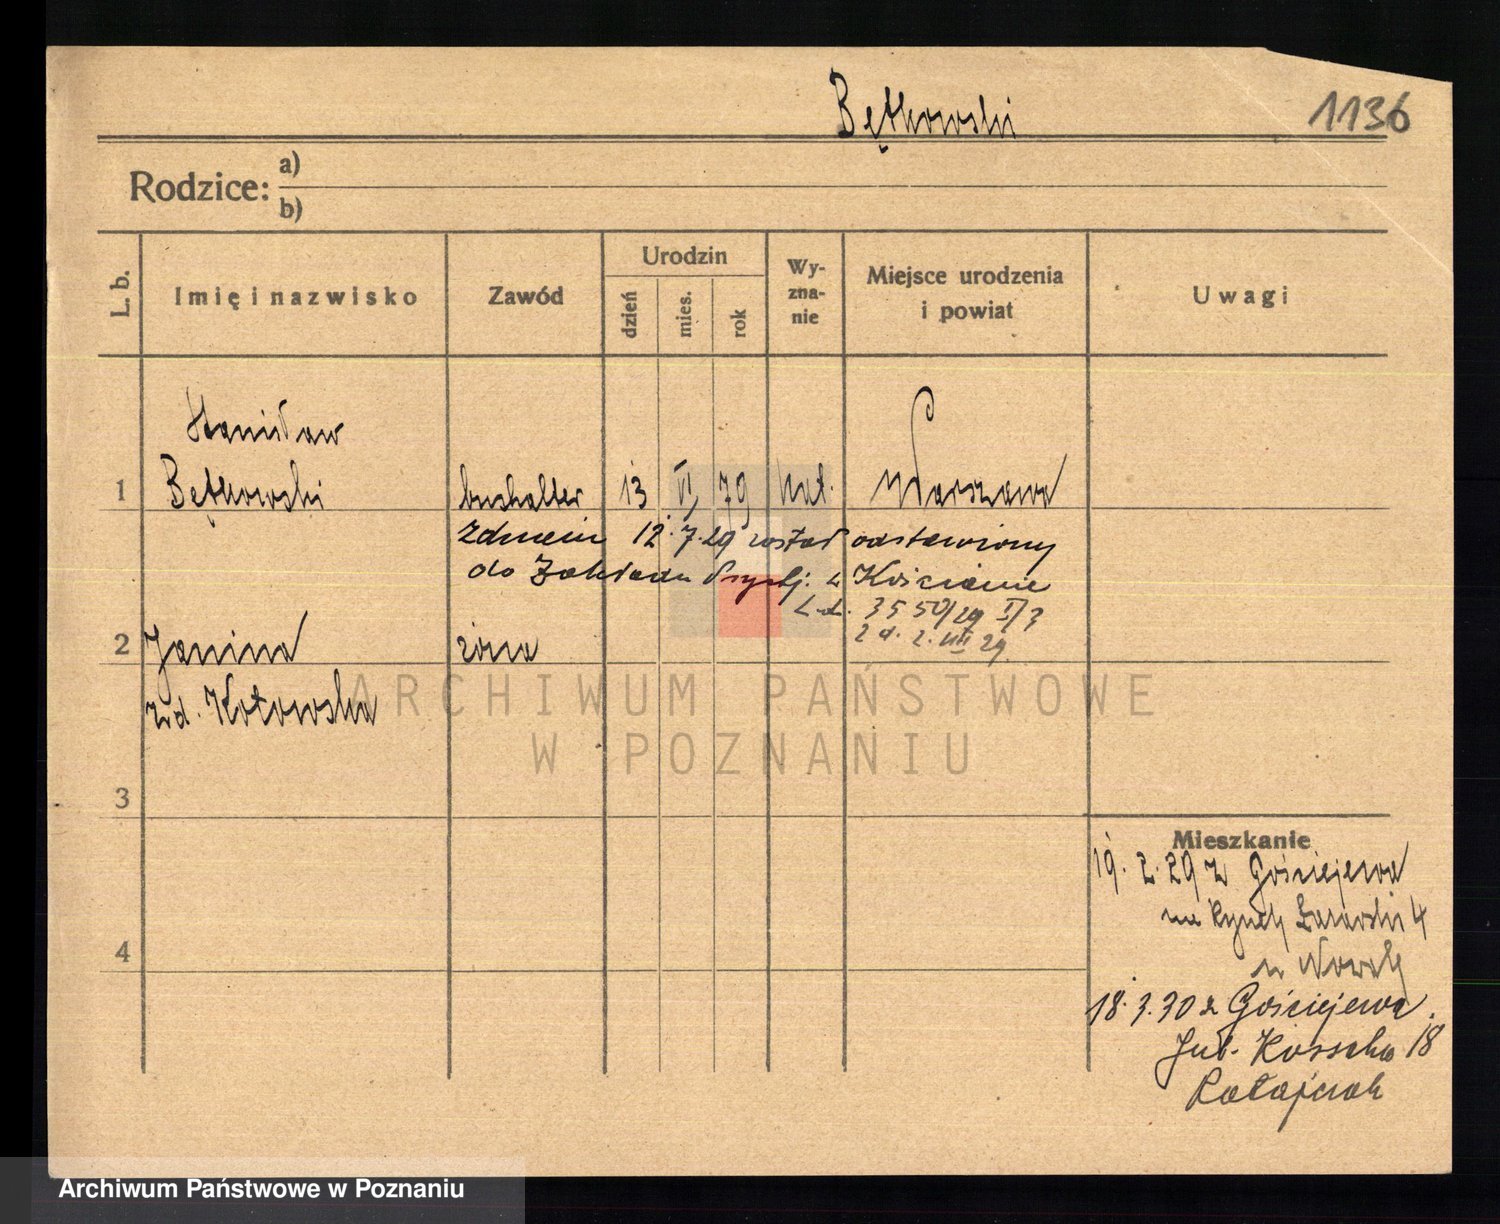 Bętkowski
1136
Rodzice:
a)
b)
L. b.
Imię i nazwisko
Zawód
Urodzin
dzień
mies.
rok
Wy-
zna-
nie
Miejsce urodzenia
i powiat
Uwagi
Stanisław
1 Bętkowski buchalter 13 VI 79 kat. Warszawa
Z dniem 12.7.29 został odstawiony
do Zakładu Psych. w Kościanie
L.d. 3550/29 I/3
z d. 2. VIII 29
2 Janina żona
zd. Kotowska
ARCHIWUM PAŃSTWOWE
W POZNANIU
3
Mieszkanie
19. 2. 29 z Gościejewa
na Rynek Łazarski 4
u Nowak
4
18. 3. 30 z Gościejewa
Jul. Kossaka 18
Ratajczak
Archiwum Państwowe w Poznaniu